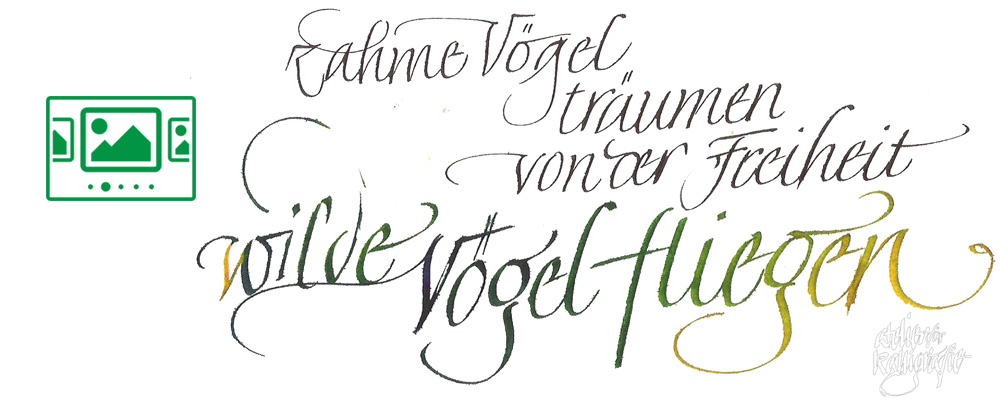 Zahme Vögel
träumen
von der Freiheit
wilde Vögel fliegen
Atelier für
Kalligrafie